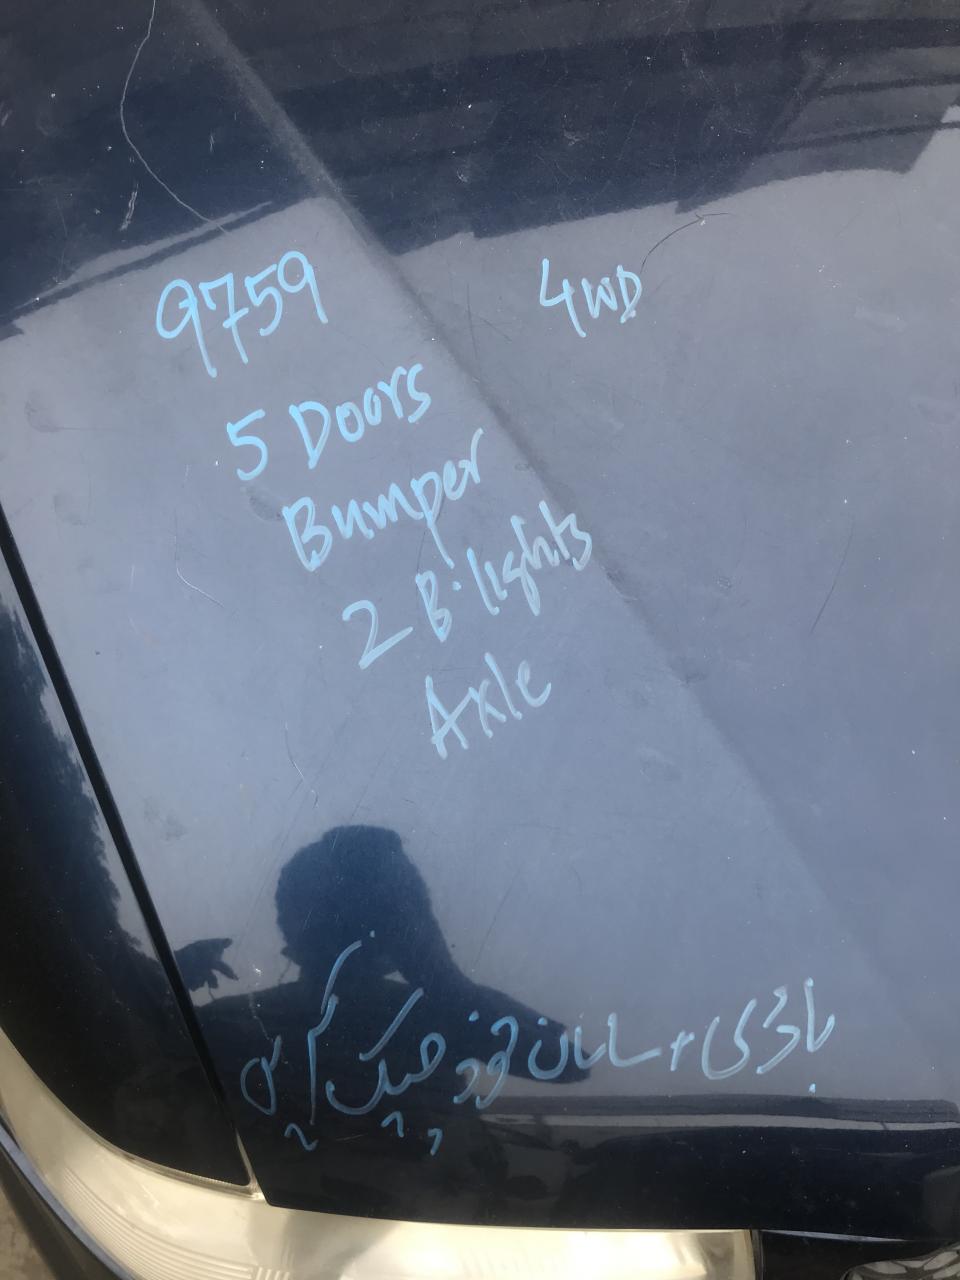 9759 4WD
5 Doors
Bumper
2 B. lights
Axle
باڈی + سامان خود چیک کریں